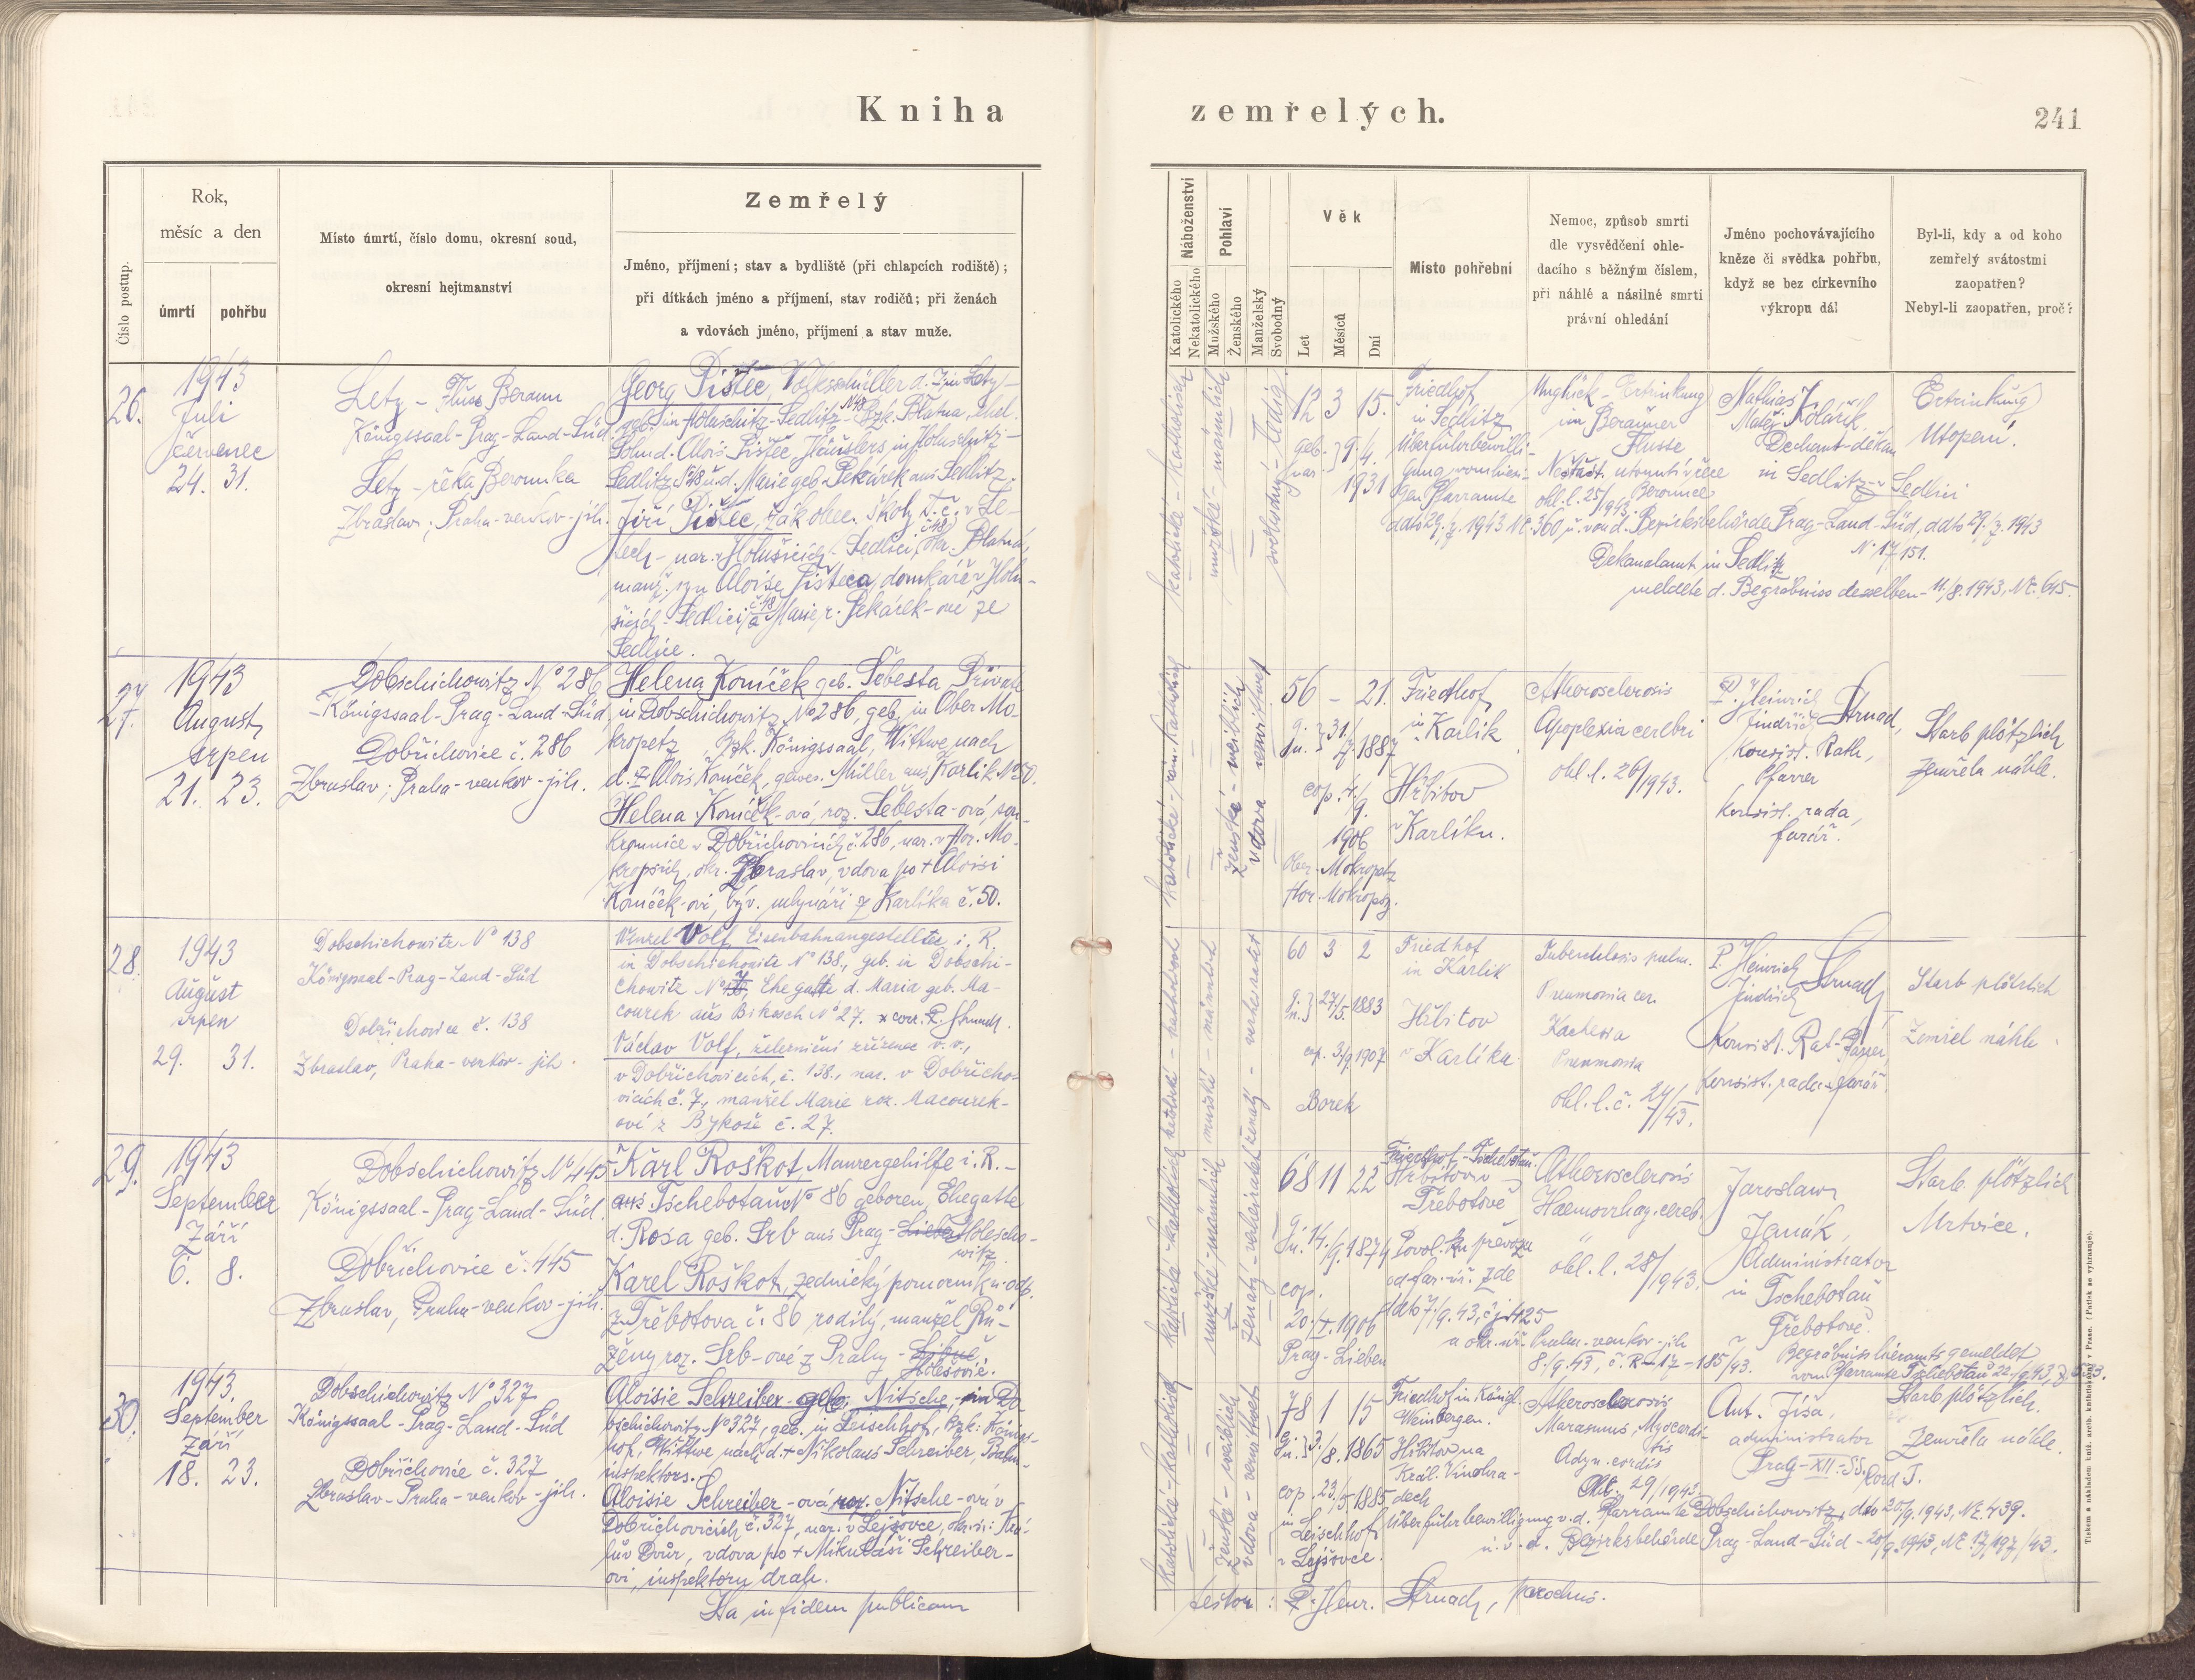 Kniha
zemřelých.
241
Číslo postup.
Rok,
měsíc a den
úmrtí
pohřbu
Místo úmrtí, číslo domu, okresní soud,
okresní hejtmanství
Zemřelý
Jméno, příjmení; stav a bydliště (při chlapcích rodiště);
při dítkách jméno a příjmení, stav rodičů; při ženách
a vdovách jméno, příjmení a stav muže.
Náboženství
Katolického
Nekatolického
Pohlaví
Mužského
Ženského
Manželský
Svobodný
Věk
Let
Měsíců
Dní
Místo pohřební
Nemoc, způsob smrti
dle vysvědčení ohle-
dacího s běžným číslem,
při náhlé a násilné smrti
právní ohledání
Jméno pochovávajícího
kněze či svědka pohřbu,
když se bez církevního
výkropu dál
Byl-li, kdy a od koho
zemřelý svátostmi
zaopatřen?
Nebyl-li zaopatřen, proč?
26.
1943
Juli
červenec
24. 31.
Lety - Fluss Beraun
Königssaal-Prag-Land-Süd.
Lety - řeka Berounka
Zbraslav; Praha-venkov-jih.
Georg Pištěc, Volksschüller d. in Lety -
geb. in Holuschitz-Sedlitz N48 Bzk. Blatna, ehel.
Sohn d. Alois Pištěc, Häuslers in Holuschitz-
Sedlitz, N°48 u. d. Marie geb. Pekárek aus Sedlitz.
Jiří Pištěc, žák obec. školy v Le-
tech - nar. v Holušicích - Sedlici č 48, okr. Blatná,
manž. syn Aloise Pištěca, domkáře v Holu-
šicích - Sedlici č 48 a Marie r. Pekárek-ové ze
Sedlice.
katolické - katholisch
mužské - männlich
svobodný - ledig
12 3 15.
geb. nar. 9/4.
1931
Friedhof
in Sedlitz
Überführbewilli-
gung vom hiesi-
gen Pfarramte
ddto 29./7. 1943 N° 360 u. von d. Bezirksbehörde Prag-Land-Süd, ddto 29./7. 1943
N° 17151.
Unglück - Ertrinkung
im Berauner
Flusse
Nešťast. utonutí v řece
Berounce
ohl. l. 25/1943.
Mathias
Matěj Kolařík.
Dechant - děkan
in Sedlitz - v Sedlici
Ertrinkung
Utopení.
Dekanalamt in Sedlitz
meldete d. Begräbniss desselben - 11/8. 1943, N° 645.
27.
1943
August
srpen
21. 23.
Dobschichowitz N° 286
- Königssaal-Prag-Land-Süd
Dobřichovice č. 286
Zbraslav; Praha-venkov-jih.
Helena Koníček geb. Šebesta, Private
in Dobschichowitz N° 286, geb. in Ober Mo-
kropetz, Bzk. Königssaal, Wittwe nach
d. + Alois Koníček, gewes. Müller aus Karlik N°50.
Helena Koníček-ová, roz. Šebesta-ová, sou-
kromnice v Dobřichovicích č. 286, nar. v Hor. Mo-
kropsích, okr. Zbraslav, vdova po + Aloisi
Koníček-ovi, býv. mlynáři z Karlíka č. 50.
ženské - weiblich
vdova verwittwet
56 - 21.
31/7. 1887
cop. 4./9.
1906
Ober-Mokropetz
Hor. Mokropsy.
Friedhof
in Karlik
Hřbitov
v Karlíku.
Atherosclerosis
Apoplexia cerebri
ohl. l. 26/1943.
P. Heinrich
Jindřich Strnad,
Konsist. Rath,
Pfarrer
konsist. rada,
farář.
Starb plötzlich
Zemřela náhle.
28.
1943
August
srpen
29. 31.
Dobschichowitz N° 138
Königssaal-Prag-Land-Süd
Dobřichovice č. 138
Zbraslav, Praha-venkov-jih.
Wenzel Volf, Eisenbahnangestellter i. R.
in Dobschichowitz N° 138., geb. in Dobschi-
chowitz N° 7, Ehegatte d. Maria geb. Ma-
courek aus Bikosch N° 27. x corr. P. Strnad.
Václav Volf, železniční zřízenec v. v.,
v Dobřichovicích, č. 138., nar. v Dobřicho-
vicích č. 7., manžel Marie roz. Macourek-
ové z Bykoše č. 27.
mužské - männlich
ženatý - verheiratet
60 3 2
27/5. 1883
cop. 3/9 1907
Borek
Friedhof
in Karlik
Hřbitov
v Karlíku.
Tuberculosis pulm.
Pneumonia
Kachexia
Pneumonia
ohl. l. č. 27/43.
P. Heinrich
Jindřich Strnad,
Konsist. Rat-Pfarrer
konsist. rada-farář.
Starb plötzlich
Zemřel náhle
29.
1943
September
Září
6. 8.
Dobschichowitz N° 445
Königssaal-Prag-Land-Süd.
Dobřichovice č. 445
Zbraslav, Praha-venkov-jih.
Karl Roškot, Maurergehilfe i. R. -
aus Tschebotau N° 86 geboren, Ehegatte
d. Rosa geb. Srb aus Prag - Lieben Holescho-
witz.
Karel Roškot, zednický pomocník n. odp.
z Třebotova č. 86 rodilý, manžel Rů-
ženy roz. Srb-ové z Prahy - Libně
Holešovic.
mužské - männlich
ženatý - verheiratet
68 11 22
14./9. 1874
cop.
20./X. 1906
Prag-Lieben
Friedhof - Tschebotau.
Hřbitov v
Třebotově
Povol. ku převozu
od far. úř. zde
ddto 7./9. 43, č. j. 425
a okr. úř. Praha-venkov-jih
8./9. 43, č. R-17-185/43.
Atherosclerosis
Haemorrhag. cereb.
ohl. l. 28/1943.
Jaroslav
Janák,
Administrator
in Tschebotau
Třebotově.
Starb plötzlich
Mrtvice.
Begräbniss hieramts gemeldet
vom Pfarramte Tschebotau 22/9. 43,
30.
1943.
September
Září
18. 23.
Dobschichowitz N° 327
Königssaal-Prag-Land-Süd
Dobřichovice č. 327
Zbraslav-Praha-venkov-jih.
Aloisie Schreiber geb. Nitsche, in Do-
bschichowitz N° 327, geb. in Leischhof, Bzk. Königs-
hof, Wittwe nach d. + Nikolaus Schreiber, Bahn-
inspektors.
Aloisie Schreiber-ová roz. Nitsche-ová v
Dobřichovicích č. 327, nar. v Lejšovce, okr. Krá-
lův Dvůr, vdova po + Mikuláši Schreiber-
ovi, inspektoru drah.
ženské - weiblich
vdova - verwittwet
78 1 15
3./8. 1865
cop. 23./5. 1885
in Leischhof
v Lejšovce.
Friedhof in Königl.
Weinbergen.
Hřbitov na
Král. Vinohra-
dech
Atherosclerosis
Marasmus, Myocardi-
tis
Adyn. cordis
Ohl. 29/1943.
Ant. Jíša,
administrator
Prag - XII
Starb plötzlich.
Zemřela náhle.
Überführbewilligung v. d. Pfarramte Dobschichowitz, dto 20./9. 1943, N° 439.
u. v. d. Bezirksbehörde Prag-Land-Süd - 20/9. 1943, N° 17/197/43.
Ita in fidem publicam
testor: P. Henr. Strnad, parochus.